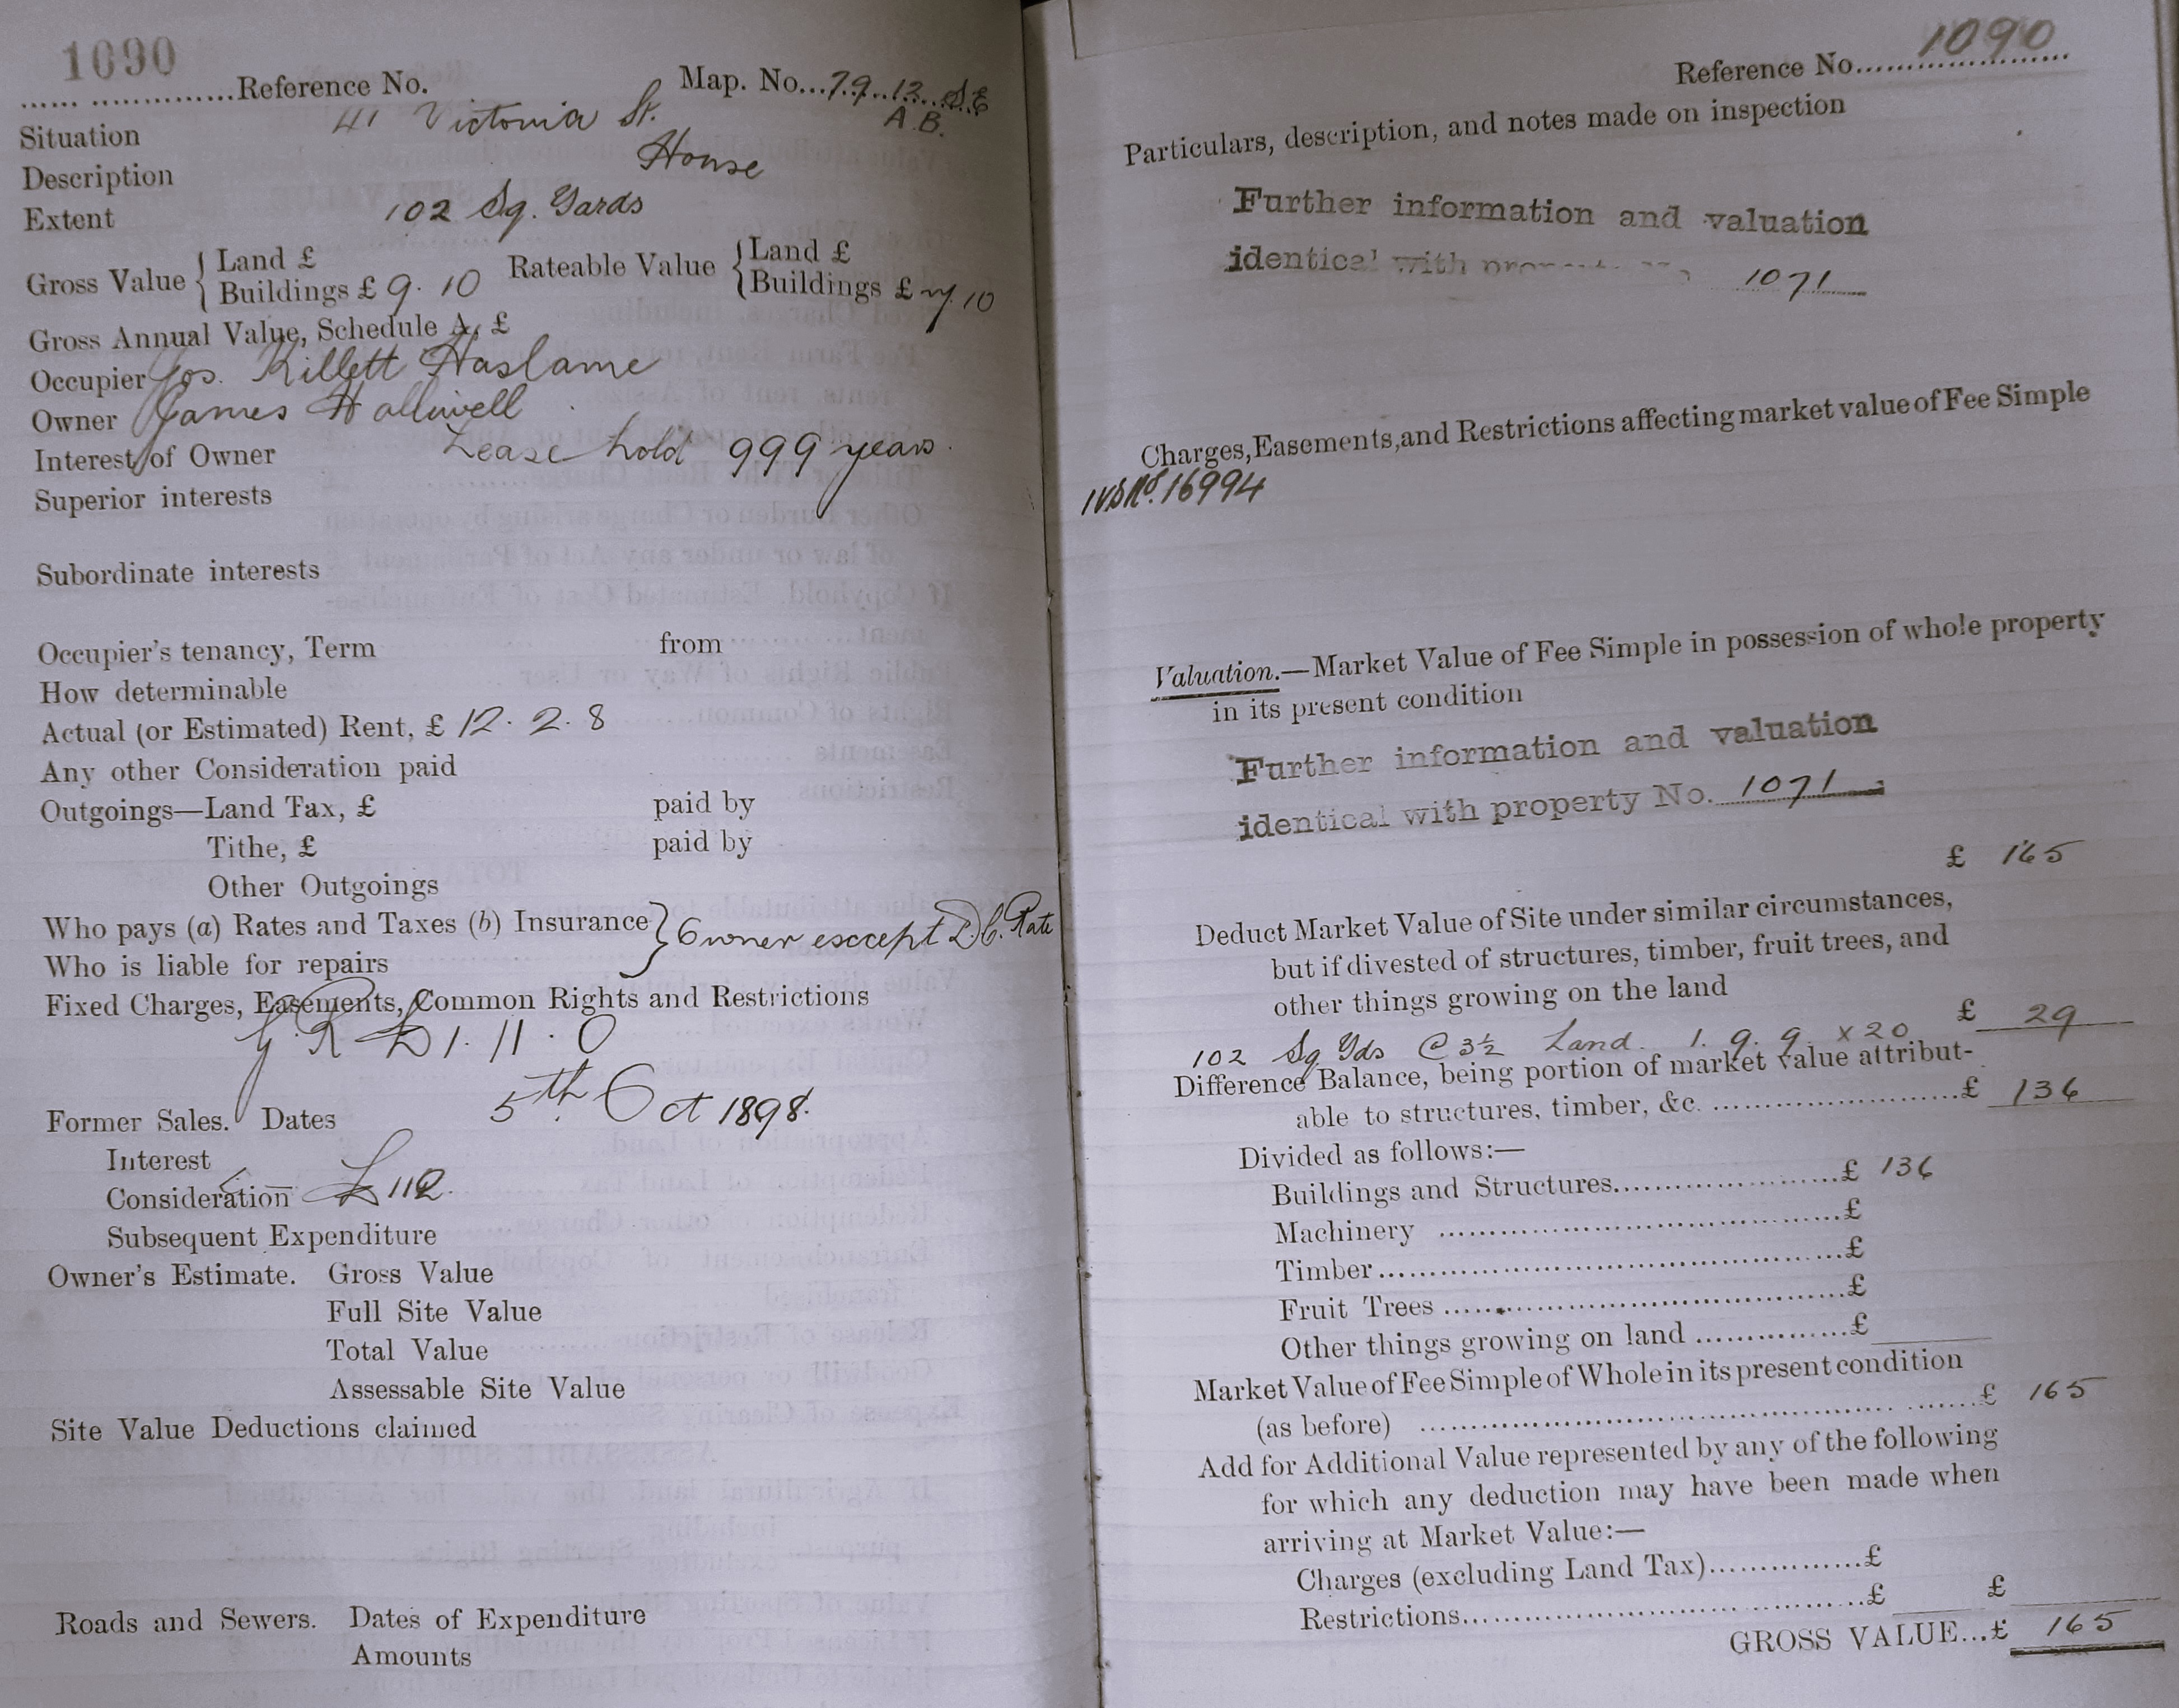 1090
...... ..............Reference No. Map. No...79..12...S.E
A.B.
Situation 41 Victoria St.
Description House
Extent 102 Sq. Yards
Gross Value { Land £ Rateable Value { Land £
Buildings £ 9. 10 Buildings £ 7. 10
Gross Annual Value, Schedule A, £
Occupier Jos. Killett Haslame
Owner James Halliwell
Interest of Owner Lease hold 999 years.
Superior interests
Subordinate interests
Occupier's tenancy, Term from
How determinable
Actual (or Estimated) Rent, £ 12. 2. 8
Any other Consideration paid
Outgoings—Land Tax, £ paid by
Tithe, £ paid by
Other Outgoings
Who pays (a) Rates and Taxes (b) Insurance } Owner except D.C. Rate
Who is liable for repairs
Fixed Charges, Easements, Common Rights and Restrictions
G. R £1. 11. 0
Former Sales. Dates 5th Oct 1898.
Interest
Consideration £112.
Subsequent Expenditure
Owner's Estimate. Gross Value
Full Site Value
Total Value
Assessable Site Value
Site Value Deductions claimed
Roads and Sewers. Dates of Expenditure
Amounts
Reference No. 1090
Particulars, description, and notes made on inspection
Further information and valuation
identical with 1071
Charges, Easements, and Restrictions affecting market value of Fee Simple
IVD No. 16994
Valuation.—Market Value of Fee Simple in possession of whole property
in its present condition
Further information and valuation
identical with property No. 1071
£ 165
Deduct Market Value of Site under similar circumstances,
but if divested of structures, timber, fruit trees, and
other things growing on the land
£ 29
102 Sq Yds @ 3½ Land. 1. 9. 9. x 20
Difference Balance, being portion of market value attribut-
able to structures, timber, &c. ........................£ 136
Divided as follows:—
Buildings and Structures......................£ 136
Machinery ........................................£
Timber..............................................£
Fruit Trees ........................................£
Other things growing on land ...............£
Market Value of Fee Simple of Whole in its present condition
(as before) ..................................................£ 165
Add for Additional Value represented by any of the following
for which any deduction may have been made when
arriving at Market Value:—
Charges (excluding Land Tax)...............£
Restrictions.........................................£ £
GROSS VALUE...£ 165